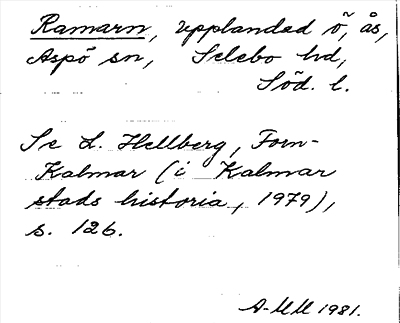 Ramarn, upplandad ö, ås,
Aspö sn, Selebo hd,
Söd. l.
Se L. Hellberg, Forn-
Kalmar (i Kalmar
stads historia, 1979),
s. 126.
A-MM 1981.